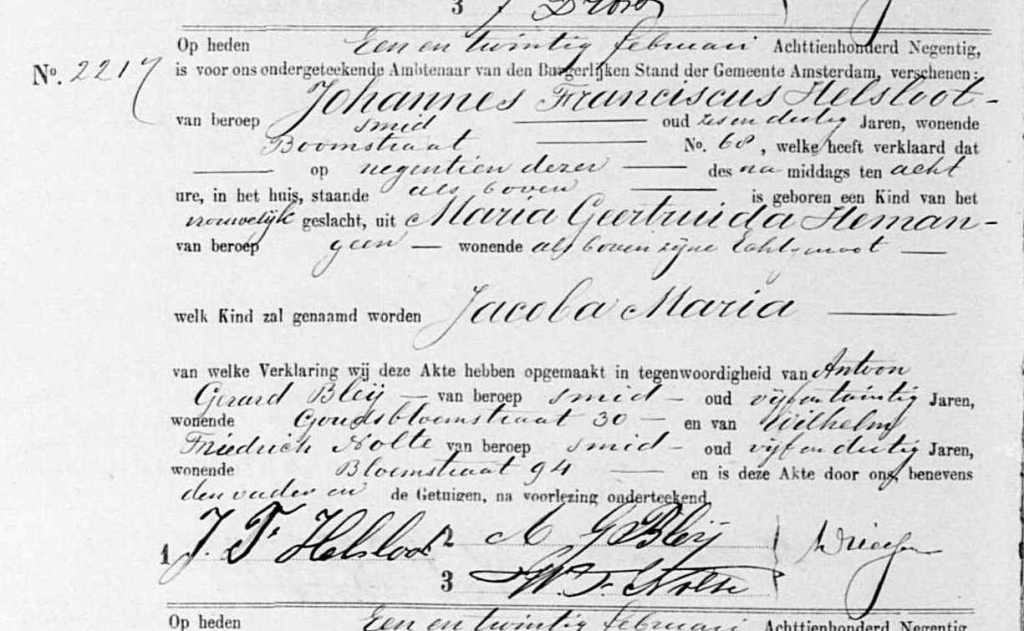 3
Op heden Een en twintig februari Achttienhonderd Negentig,
No. 2217 is voor ons ondergeteekende Ambtenaar van den Burgerlijken Stand der Gemeente Amsterdam, verschenen:
Johannes Franciscus Helsloot
van beroep smid oud zes en dertig Jaren, wonende
Boomstraat No. 68, welke heeft verklaard dat
op negentien dezer des na middags ten acht
ure, in het huis, staande als boven is geboren een Kind van het
vrouwelijk geslacht, uit Maria Geertruida Heman
van beroep geen wonende als boven zijne Echtgenoot
welk Kind zal genaamd worden Jacoba Maria
van welke Verklaring wij deze Akte hebben opgemaakt in tegenwoordigheid van Antoon
Gerard Bleij van beroep smid oud vijf en twintig Jaren,
wonende Goudsbloemstraat 30 en van Wilhelm
Friedrich Nolte van beroep smid oud vijf en dertig Jaren,
wonende Bloemstraat 94 en is deze Akte door ons, benevens
den vader en de Getuigen, na voorlezing onderteekend.
1 J. F. Helsloot 2 A G Bleij
3 W. F. Nolte
Op heden Een en twintig februari Achttienhonderd Negentig,